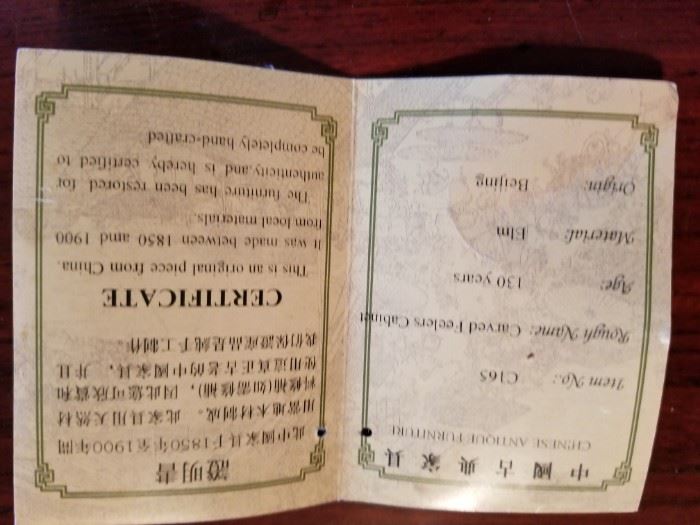 中國古典家具
CHINESE ANTIQUE FURNITURE
Item No.: C165
Rough Name: Carved Feelers Cabinet
Age: 130 years
Material: Elm
Origin: Beijing
證明書
此中國家具于1850年至1900年間
用當地木材制成。此家具用天然材
料修補(如需修補)，因此您可欣賞和
使用這真正古老的中國家具，并且
我们保證產品是純手工制作。
CERTIFICATE
This is an original piece from China.
It was made between 1850 amd 1900
from local materials.
The furniture has been restored for
authenticity.and is hereby certified to
be completely hand-crafted